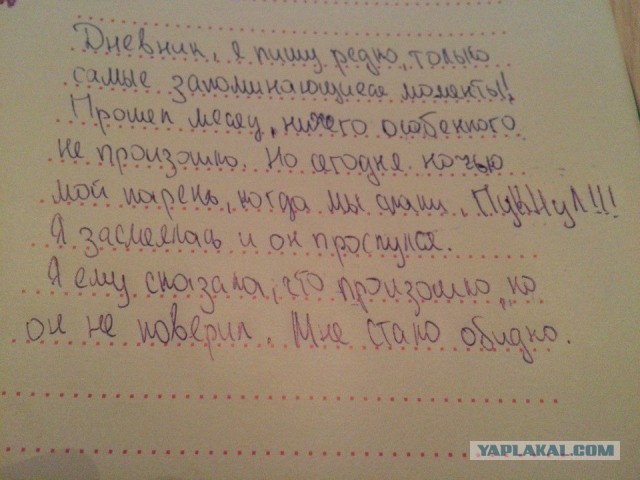 Дневник, я пишу редко, только
самые запоминающиеся моменты!!
Прошел месяц, ничего особенного
не произошло. Но сегодня ночью
мой парень, когда мы спали, ПУКНУЛ!!!
Я засмеялась и он проснулся.
Я ему сказала, что произошло, но
он не поверил. Мне стало обидно.
YAPLAKAL.COM